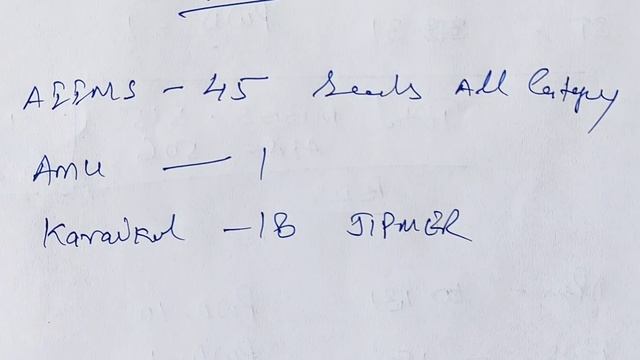 AIIMS - 45 Seats All Category
AMU — 1
Karaikal - 18 JIPMER